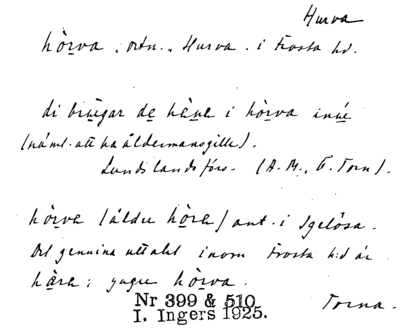 Hurva
hòrva, ortn., Hurva i Frosta hd.
di brúgar de hène i hòrva inú
(näml. att ha åldermansgille).
Lundslandsförs. (A.M., Ö. Torn).
hòrva (äldre hòra) ant. i Igelösa.
Det genuina uttalet inom Frosta h:d är
hàra; yngre hòrva.
Nr 399 & 510 Torna.
I. Ingers 1925.